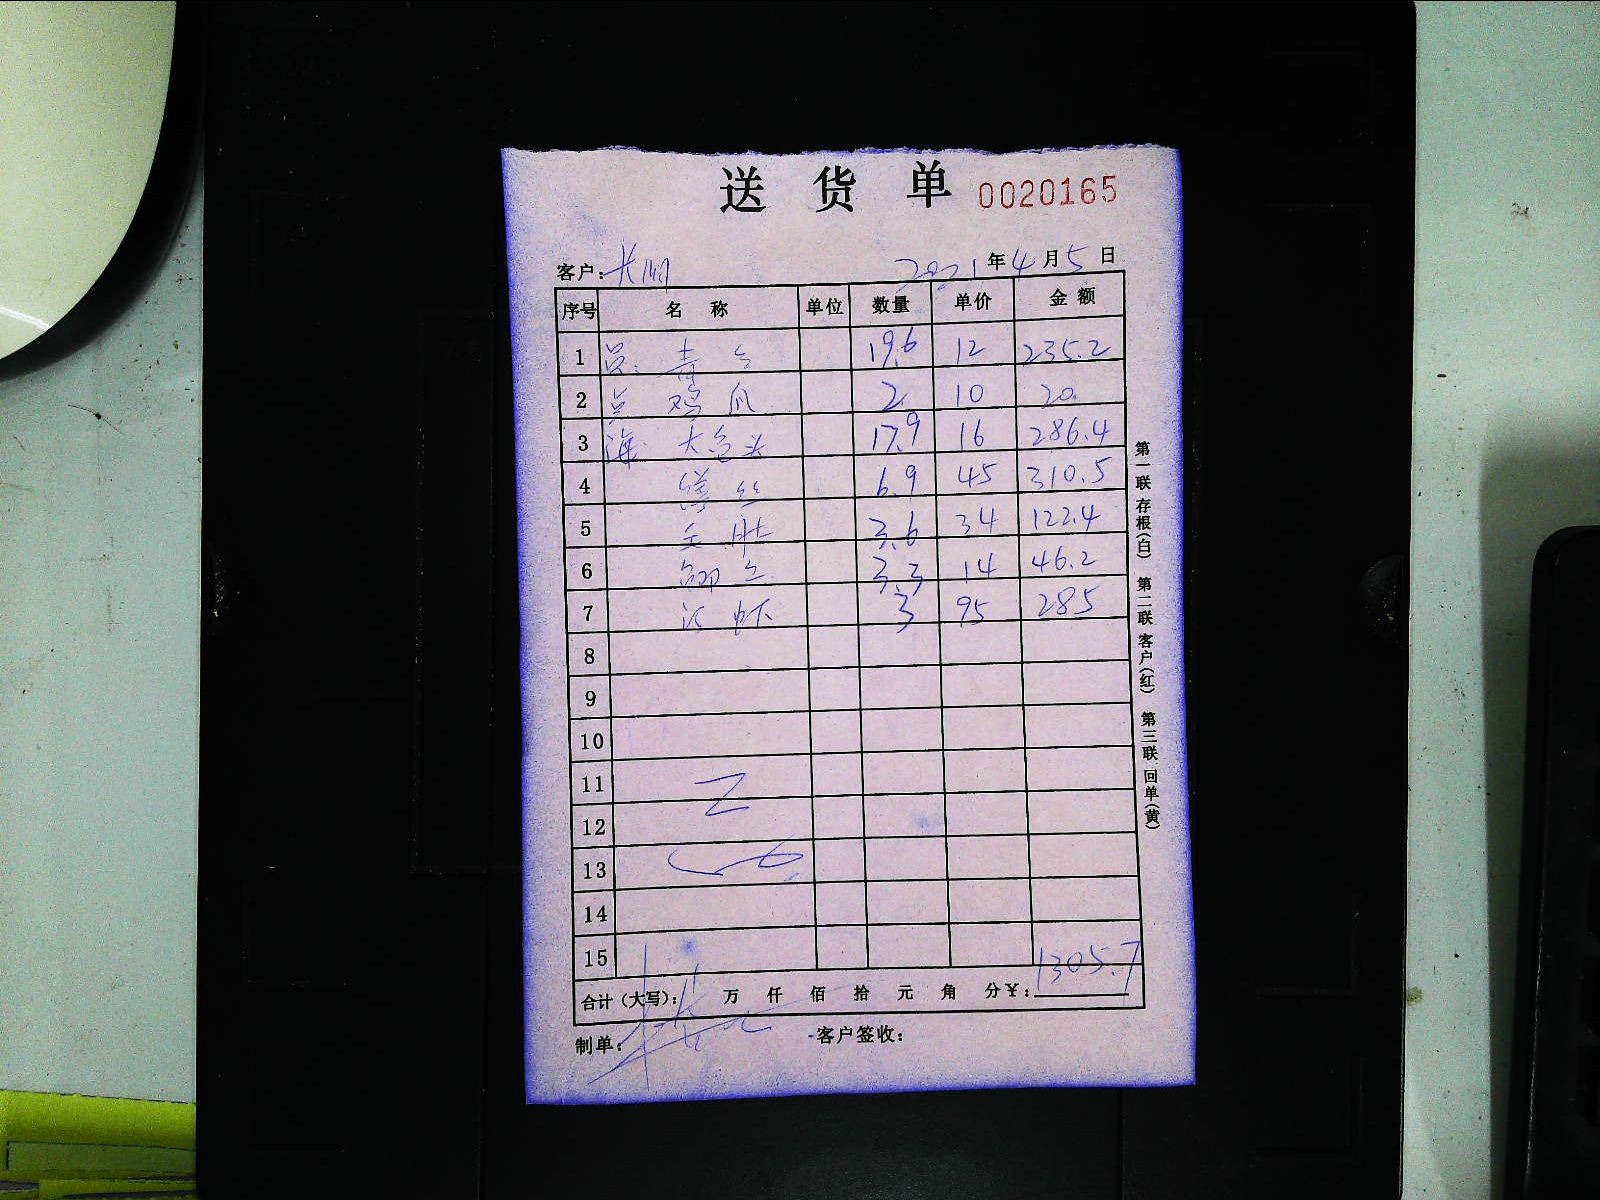 送货单 0020165
客户: 2021年4月5日
序号 名称 单位 数量 单价 金额
1 19.6 12 235.2
2 鸡爪 2 10 20
3 海 大鱼头 17.9 16 286.4
4 6.9 45 310.5
5 肚 3.6 34 122.4
6 3.3 14 46.2
7 虾 3 95 285
8
9
10
11
12
13
14
15
合计(大写): 万 仟 佰 拾 元 角 分¥: 1305.7
制单: 客户签收:
第一联 存根(白) 第二联 客户(红) 第三联 回单(黄)